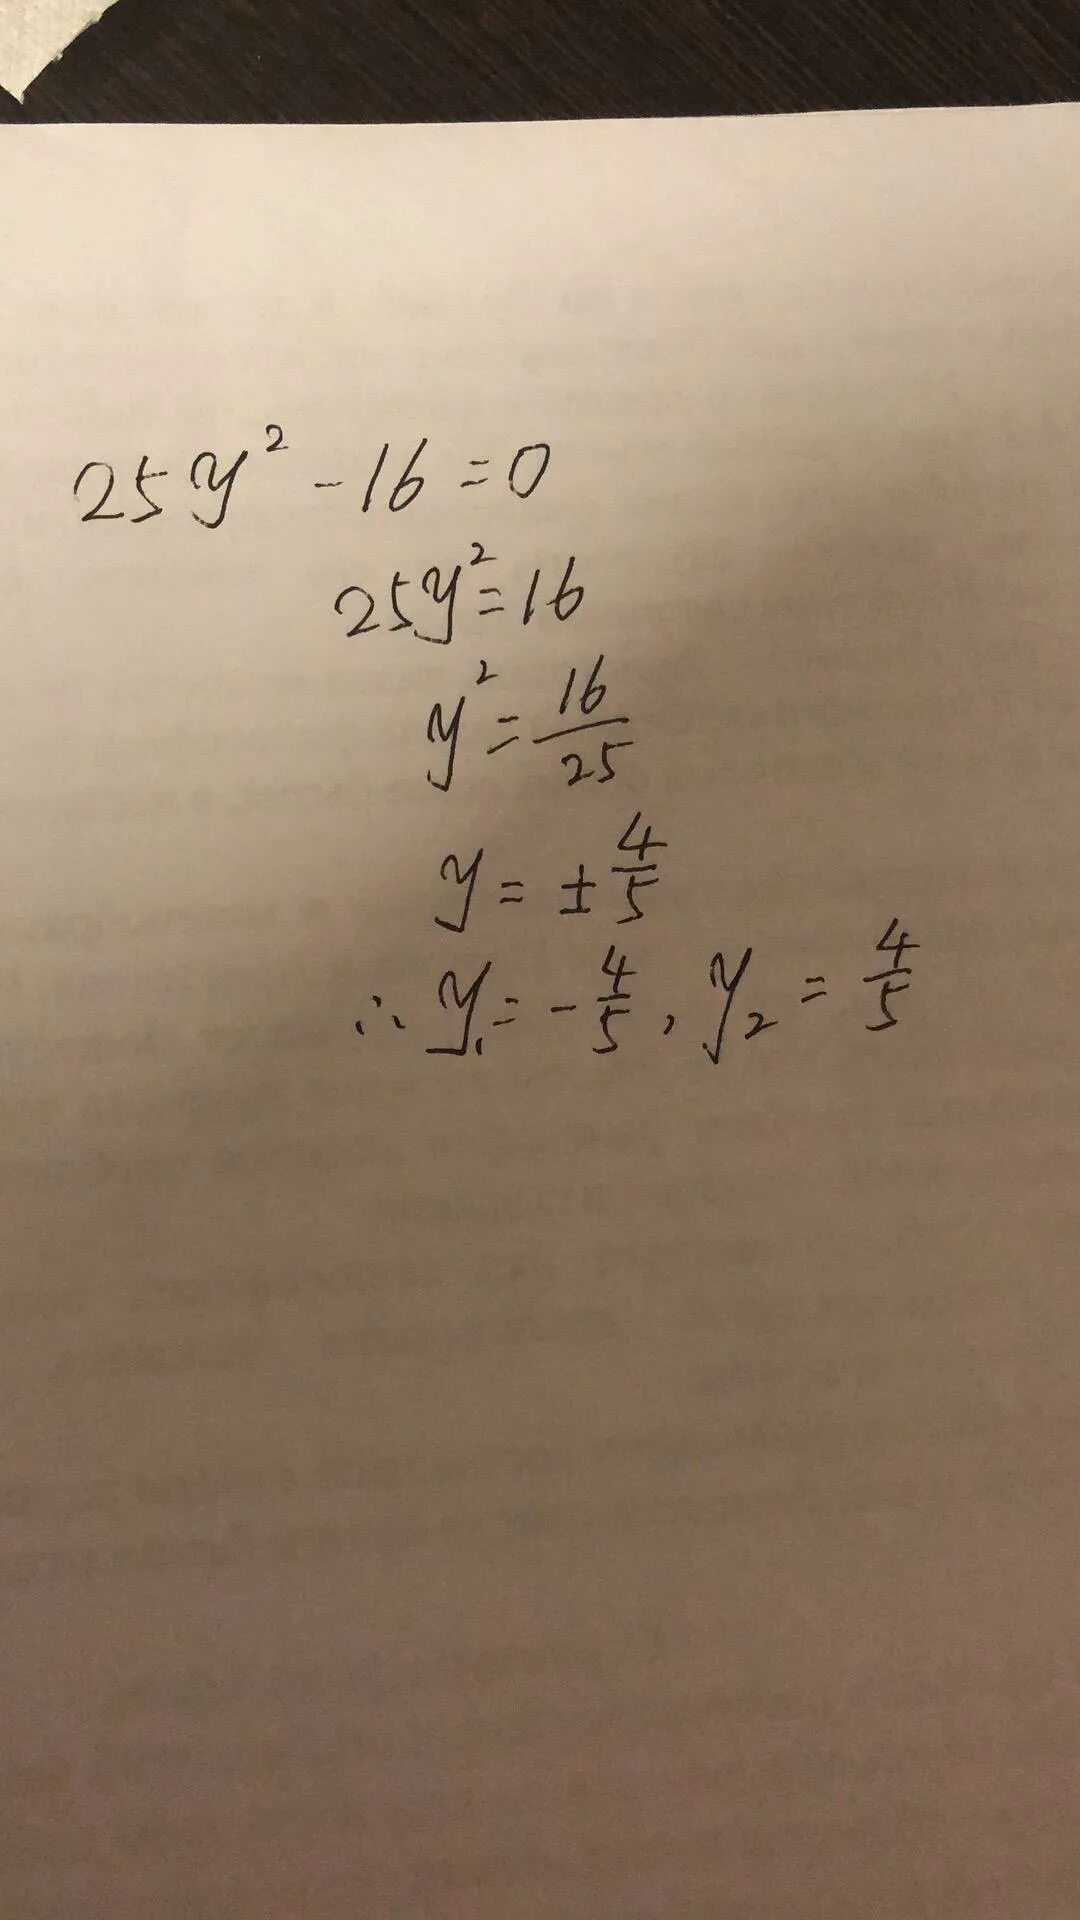 25y² - 16 = 0
25y² = 16
y² = 16/25
y = ± 4/5
∴ y₁ = - 4/5, y₂ = 4/5